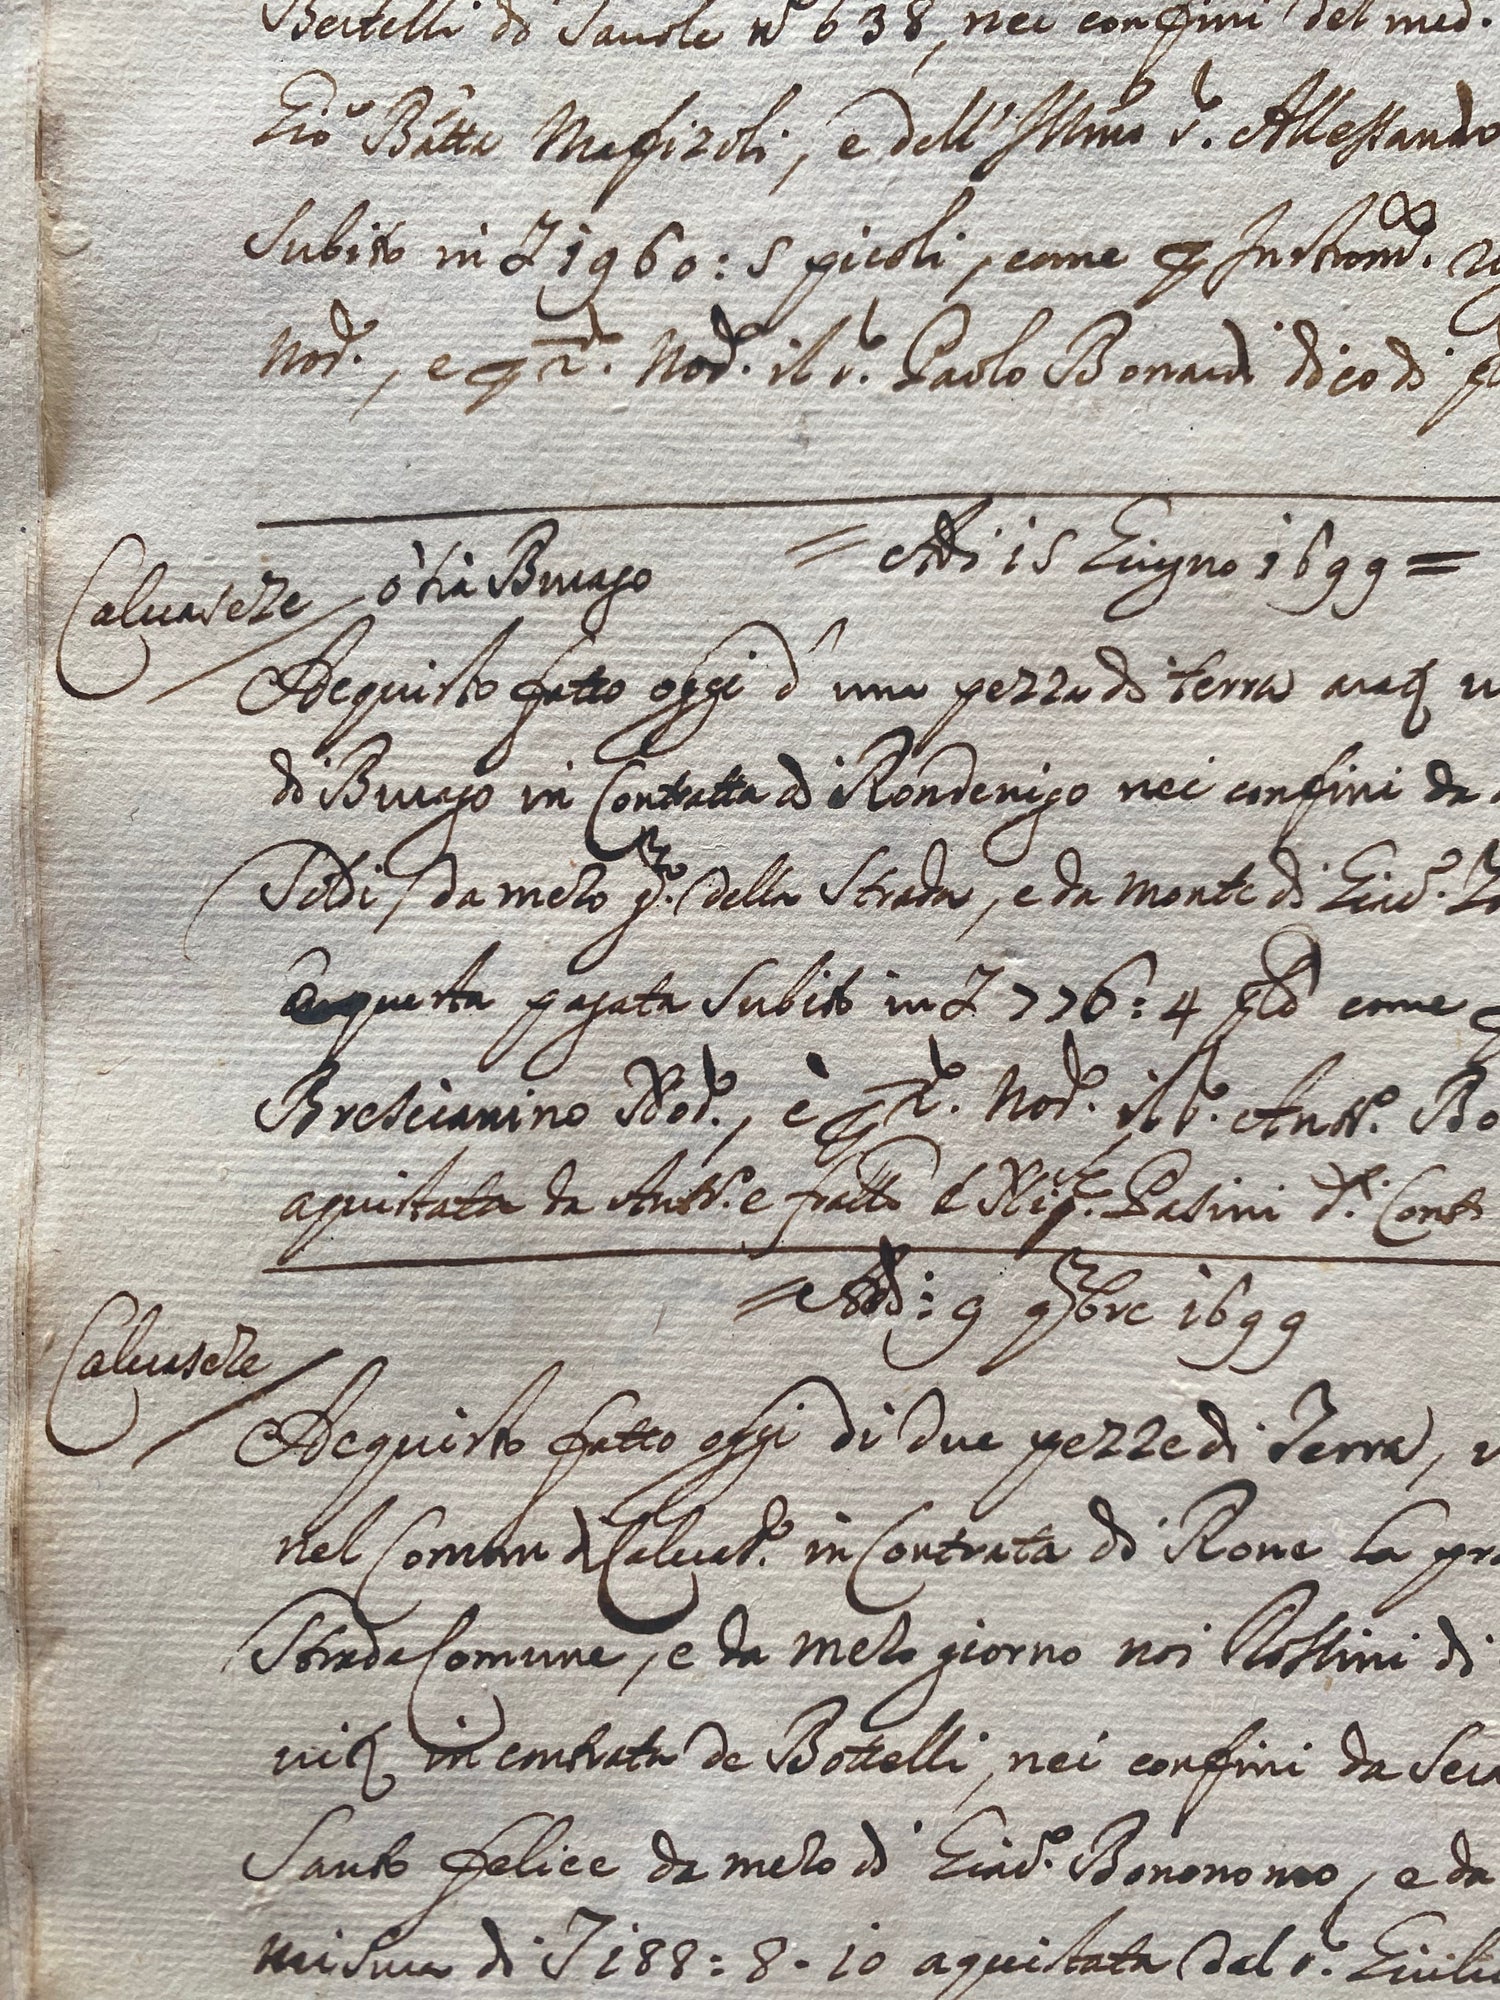 Bertelli di Tavole nº 638, nei confini del med.
Gioº Batta Maffizoli, e dell' Illmo sr. Allessandro
Subito in L 1960: 5 picoli, come p Instromº.
Nodº., e p 2º. Nodº. il sr. Paolo Bonardi dico di
= Adi 15 Giugno 1699 =
Caluaseze / ò sia Burago
Adequisto fatto oggi d' una pezza di terra araq
di Burago in Contratta di Rondenigo nei confini da
Soldi, da mezo gº. della Strada, e da monte di Giacº.
questa pagata Subito in L 776: 4 pld come p
Brescianino Nodº., è p 2º. Nodº. il sr. Antº. Bo
aquistata da Antº. e fratto è Pasini dº. Cont
= Adi: 9 9bre 1699
Caluaseze /
Adequisto fatto oggi di due pezze di Terra,
nel Comun di Caluasº. in Contrata di Rone La pr
Strada Comune, e da mezo giorno noi Rossini di
uiq in contrata de Bottelli, nei confini da Sera
Santo felice da mezo di Giacº. Bononomo, e da
misura di T 188: 8 - 10 aquistata dal sr. Giuliu